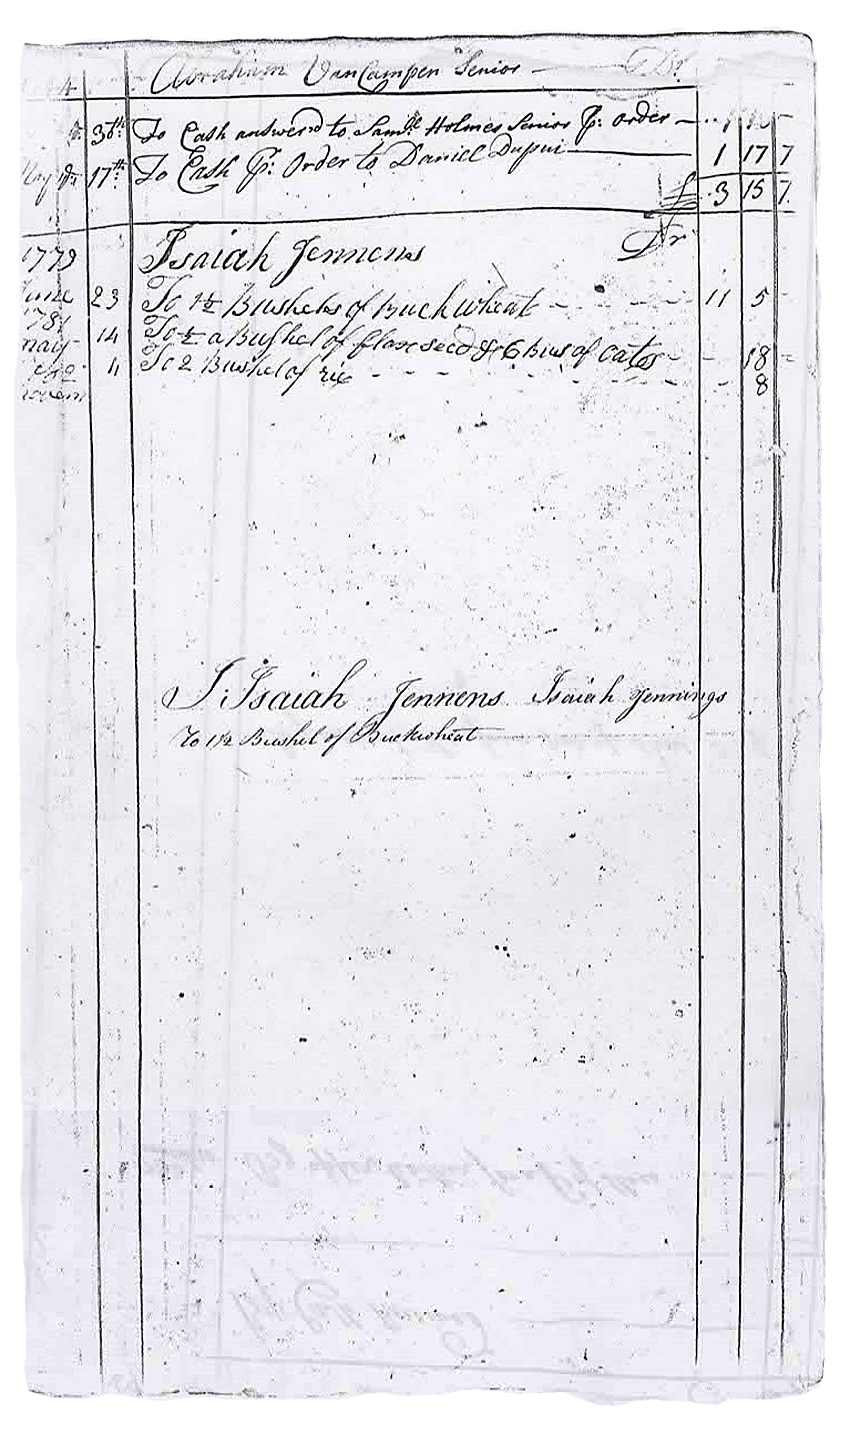 4 Abraham VanCampen Senior Dr.
do. 30th To Cash answer'd to Saml. Holmes Senior Pr. order
do. 17th To Cash Pr. Order to Daniel Dupui 1 17 7
£ 3 15 7
1779 Isaiah Jennens Dr
June 23 To 1½ Bushels of Buckwheat 11 5
1781
may 14 To ½ a Bushel of flaxseed & 6 bus of oates 18
4 To 2 Bushel of rie 8
novem
I: Isaiah Jennens Isaiah Jennings
To 1½ Bushel of Buckwheat